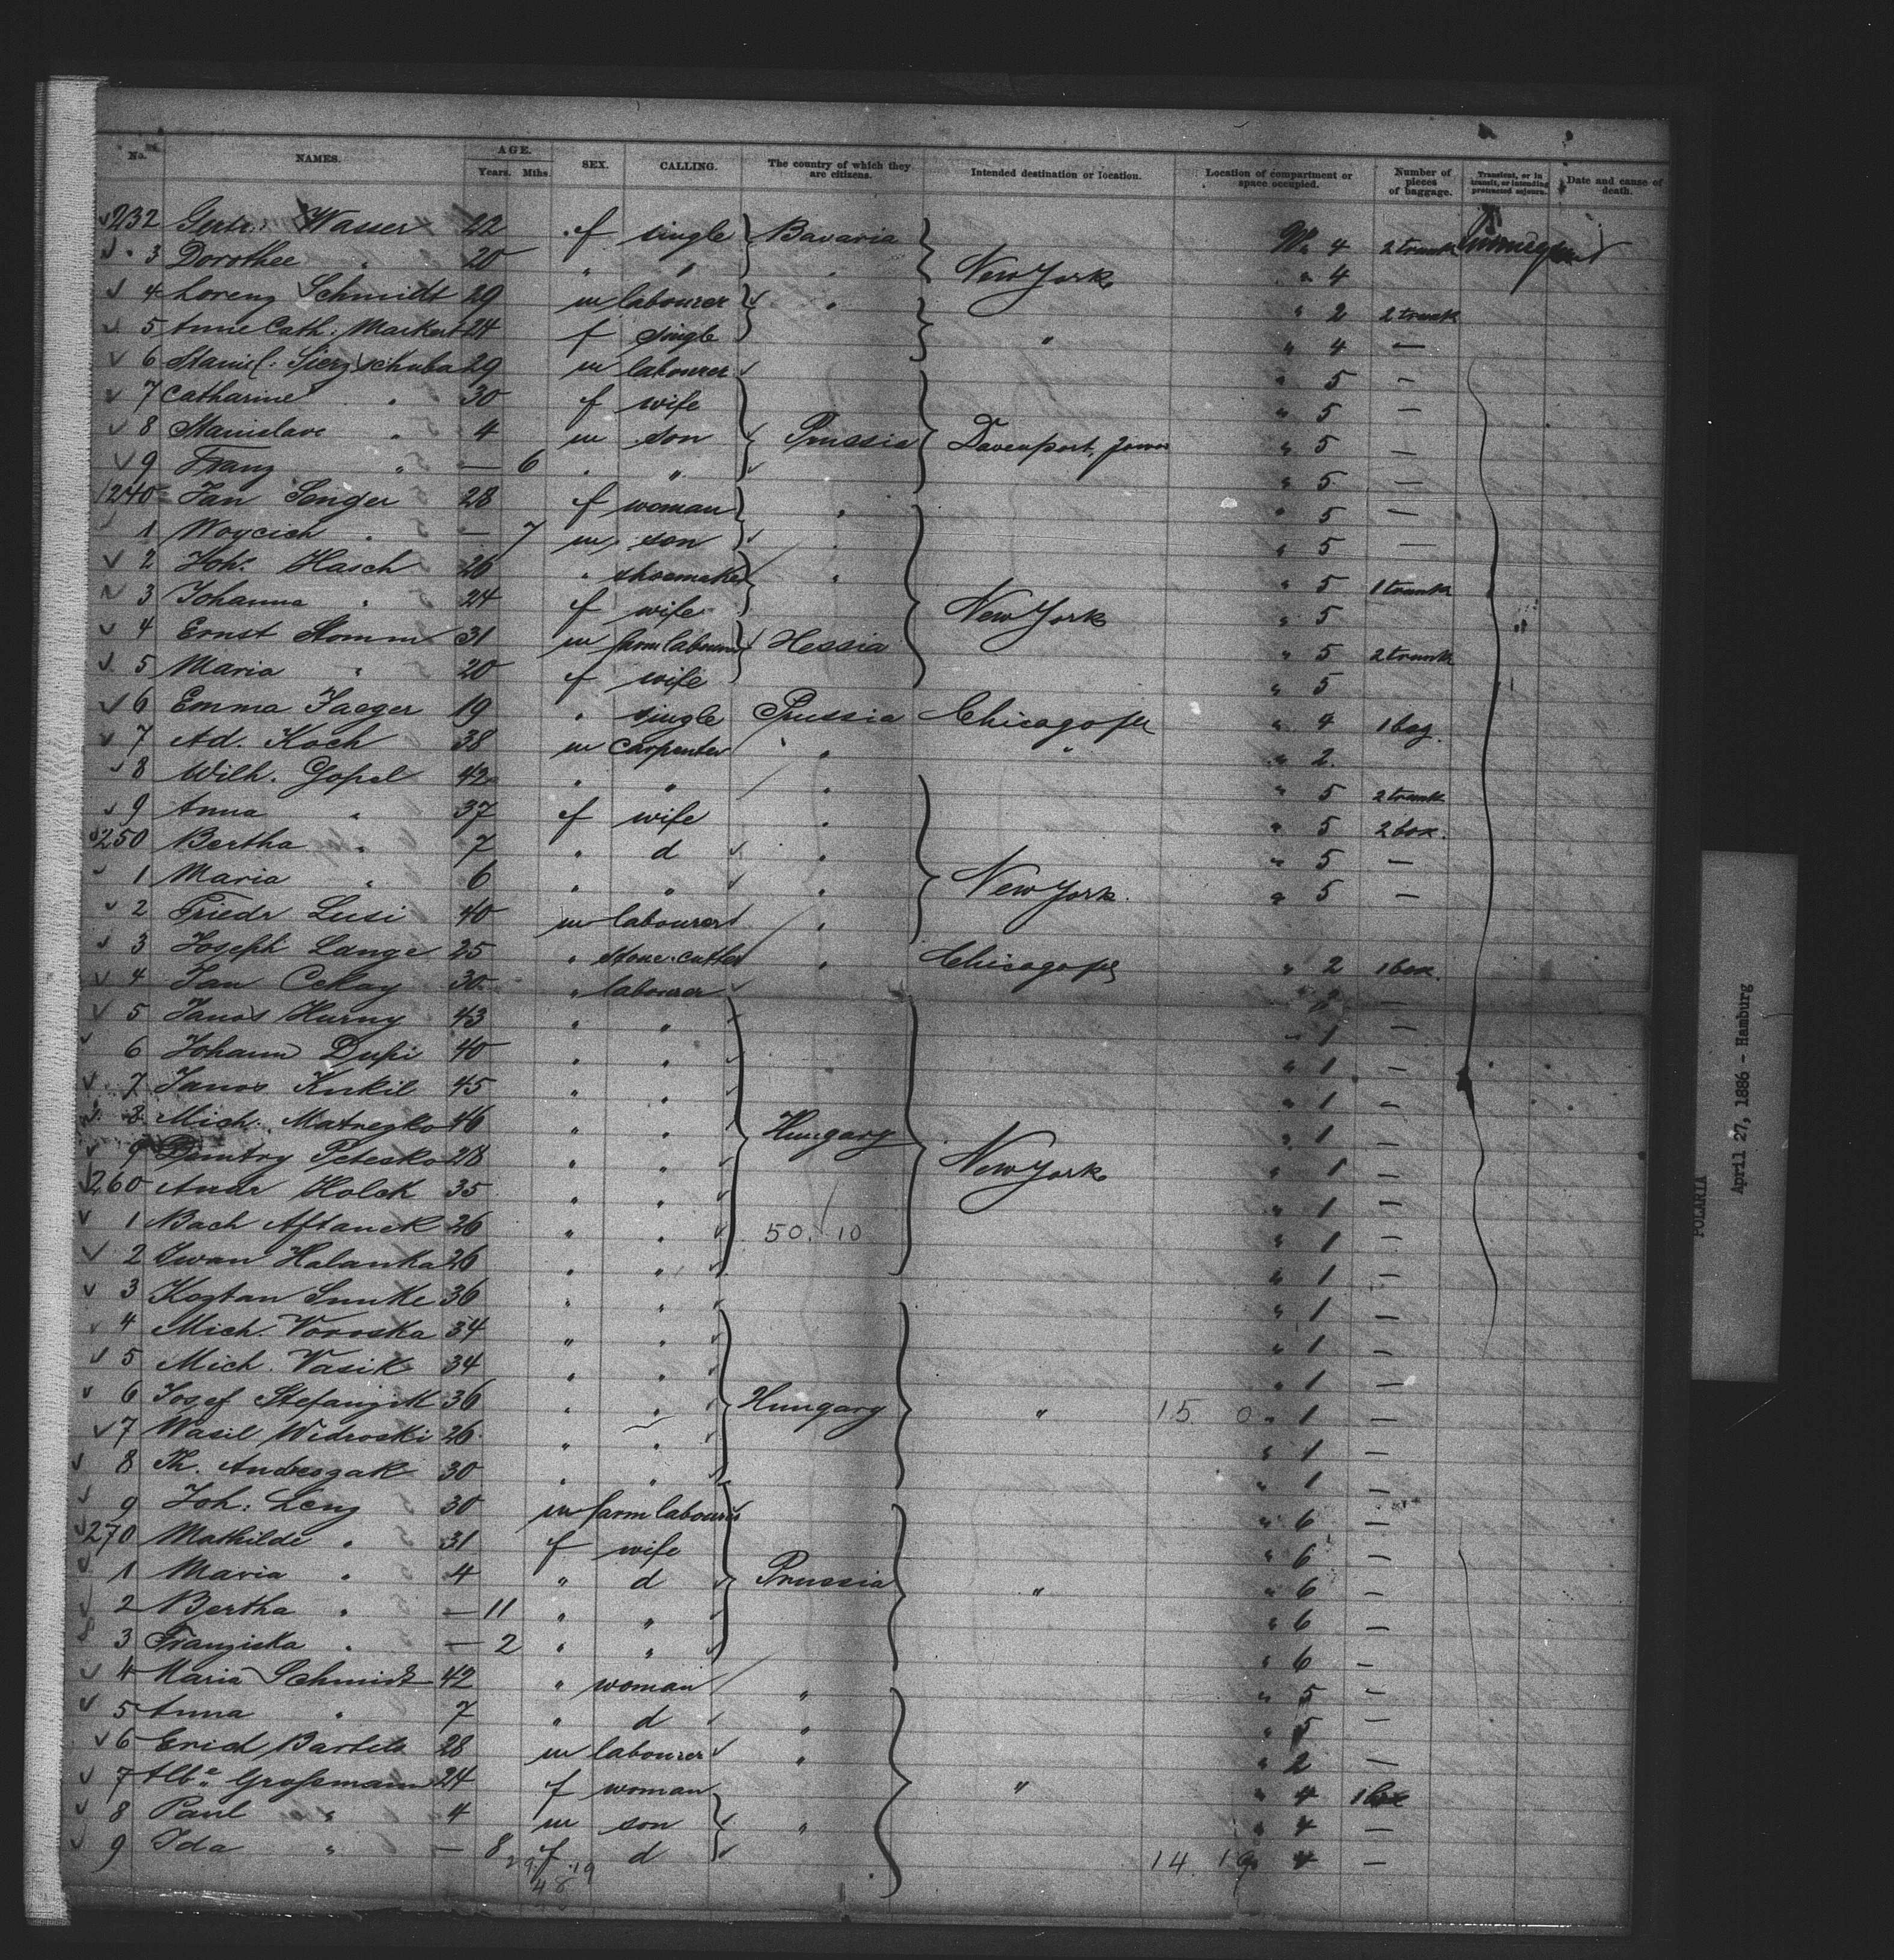 No. NAMES. AGE. Years. Mths. SEX. CALLING. The country of which they are citizens. Intended destination or location. Location of compartment or space occupied. Number of pieces of baggage. Transient, or in transit, or intending protracted sojourn. Date and cause of death.
232 Gertr. Wasser 22 f single Bavaria W. 4 2 trunk
3 Dorothee " 20 " " " New York " 4
4 Lorenz Schmidt 29 m labourer " " 2 2 trunk
5 Anna Cath. Markert 24 f single " " 4 —
6 29 m labourer " 5 —
7 Catharine " 30 f wife " 5 —
8 Stanislaw " 4 m son Prussia Davenport, Jowa " 5 —
9 Franz " — 6 " " " 5 —
240 Jan Senger 28 f woman " " 5 —
1 Woycich " — 7 m son " " 5 —
2 Joh. Hasch 26 " shoemaker " " 5 1 trunk
3 Johanna " 24 f wife New York " 5
4 Ernst Stomm 31 m farm labourer Hessia " 5 2 trunk
5 Maria " 20 f wife " 5
6 Emma Jaeger 19 " single Prussia Chicago " 4 1 bag.
7 Ad. Koch 38 m carpenter " " " 2.
8 Wilh. Gopel 42 " " " " 5 2 trunk
9 Anna " 37 f wife " " 5 2 box.
250 Bertha " 7 " d " " 5 —
1 Maria " 6 " " " New York. " 5 —
2 Friedr Lusi 40 m labourer "
3 Joseph Lange 25 " stone-cutter " Chicago " 2 1 box
4 Jan Cekay 30 " labourer " 2 —
5 Janos Hurny 43 " " " 1 —
6 Johann Dupi 40 " " " 1 —
7 Janos Kukil 45 " " " 1 —
8 Mich. Matnezko 46 " " Hungary " 1 —
9 Dimitry Petesko 28 " " New York " 1 —
260 Andr Holek 35 " " " 1 —
1 Bach Aftanek 26 " " 50. 10 " 1 —
2 Iwan Halanka 26 " " " 1 —
3 Kostan Smike 36 " " " 1 —
4 Mich. Voroska 34 " " " 1 —
5 Mich. Vasik 34 " " " 1 —
6 Josef Stefanzik 36 " " Hungary " 15. 0 " 1 —
7 Wasil Widroski 26 " " " 1 —
8 Th. Andreszak 30 " " " 1 —
9 Joh. Lenz 30 m farm labourer " 6 —
270 Mathilde " 31 f wife " 6 —
1 Maria " 4 " d Prussia " " 6 —
2 Bertha " — 11 " " " 6 —
3 Franziska " — 2 " " " 6 —
4 Maria Schmidt 42 " woman " " 5 —
5 Anna " 7 " d " " 5 —
6 Bartels 28 m labourer " " 2 —
7 Grossmann 24 f woman " " 4 1 box
8 Paul " 4 m son " " 4 —
9 Ida " — 8 f d 14. 19 " 4 —
29 19
48
POLARIA
April 27, 1886 - Hamburg